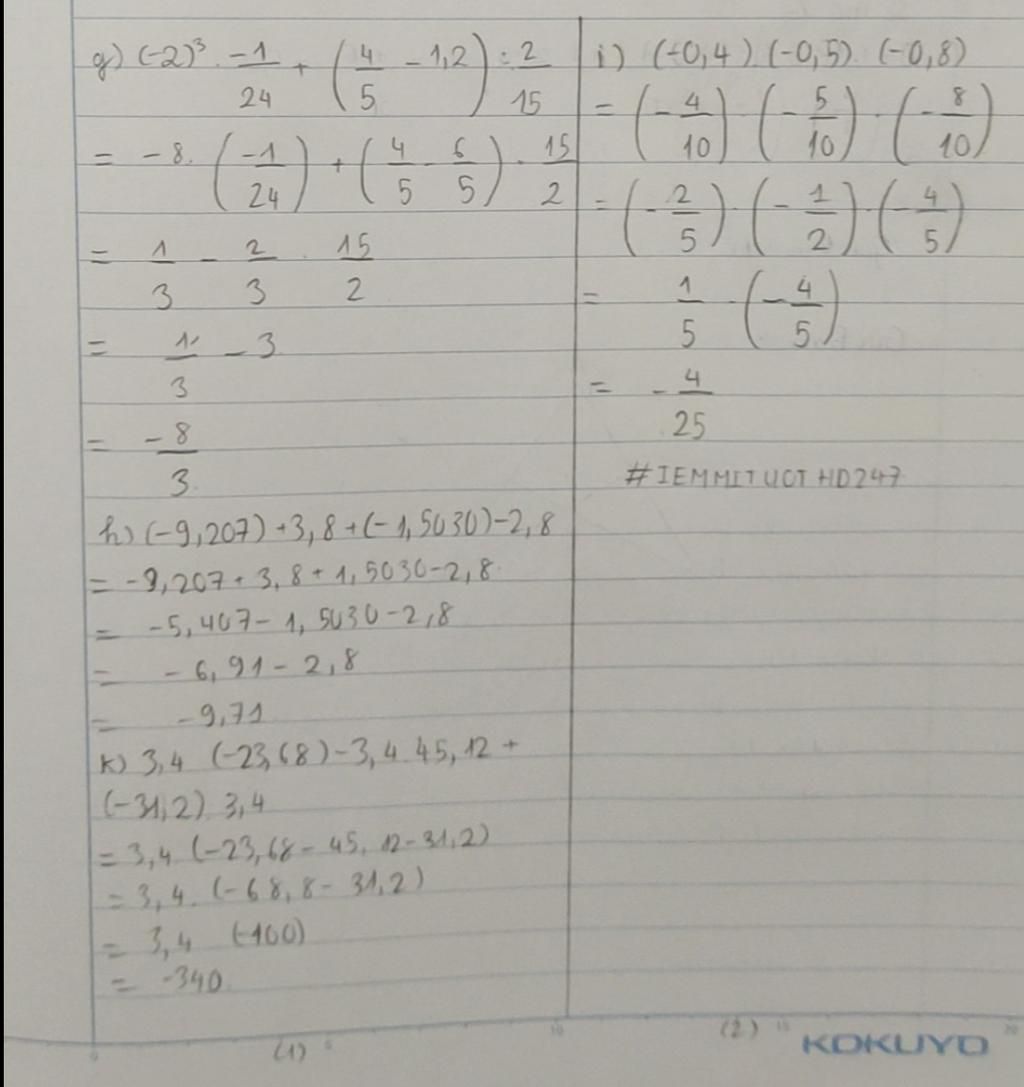 g) (-2)³ . -1/24 + (4/5 - 1,2) : 2/15
= -8. (-1/24) + (4/5 - 6/5) . 15/2
= 1/3 - 2/3 . 15/2
= 1/3 - 3
= -8/3
h) (-9,207) + 3,8 + (-1,5030) - 2,8
= -9,207 + 3,8 + 1,5030 - 2,8
= -5,407 - 1,5030 - 2,8
= -6,91 - 2,8
= -9,71
k) 3,4 (-23,68) - 3,4. 45,12 +
(-31,2). 3,4
= 3,4. (-23,68 - 45,12 - 31,2)
= 3,4. (-68,8 - 31,2)
= 3,4 (-100)
= -340
(1)
i) (-0,4) . (-0,5) . (-0,8)
= (-4/10) . (-5/10) . (-8/10)
= (-2/5) . (-1/2) . (-4/5)
= 1/5 . (-4/5)
= -4/25
#IEMMITUOTHD247
(2)
0 5 10 15 20
KOKUYO